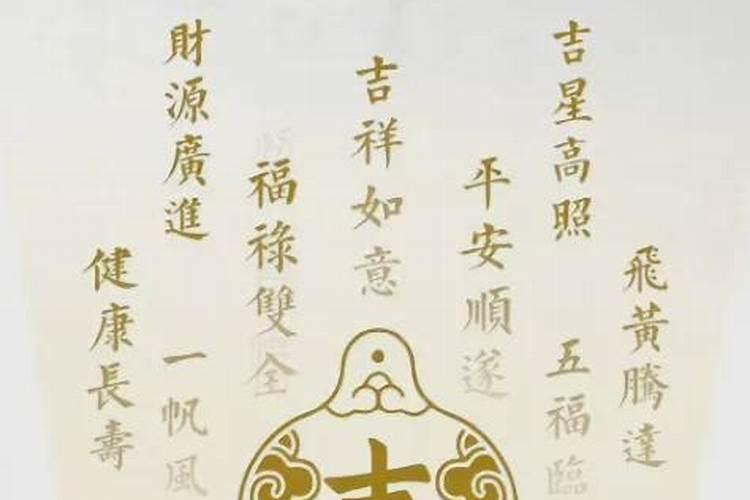 飛黃騰達
吉星高照
五福臨
平安順遂
吉祥如意
福祿雙全
財源廣進
一帆風
健康長壽